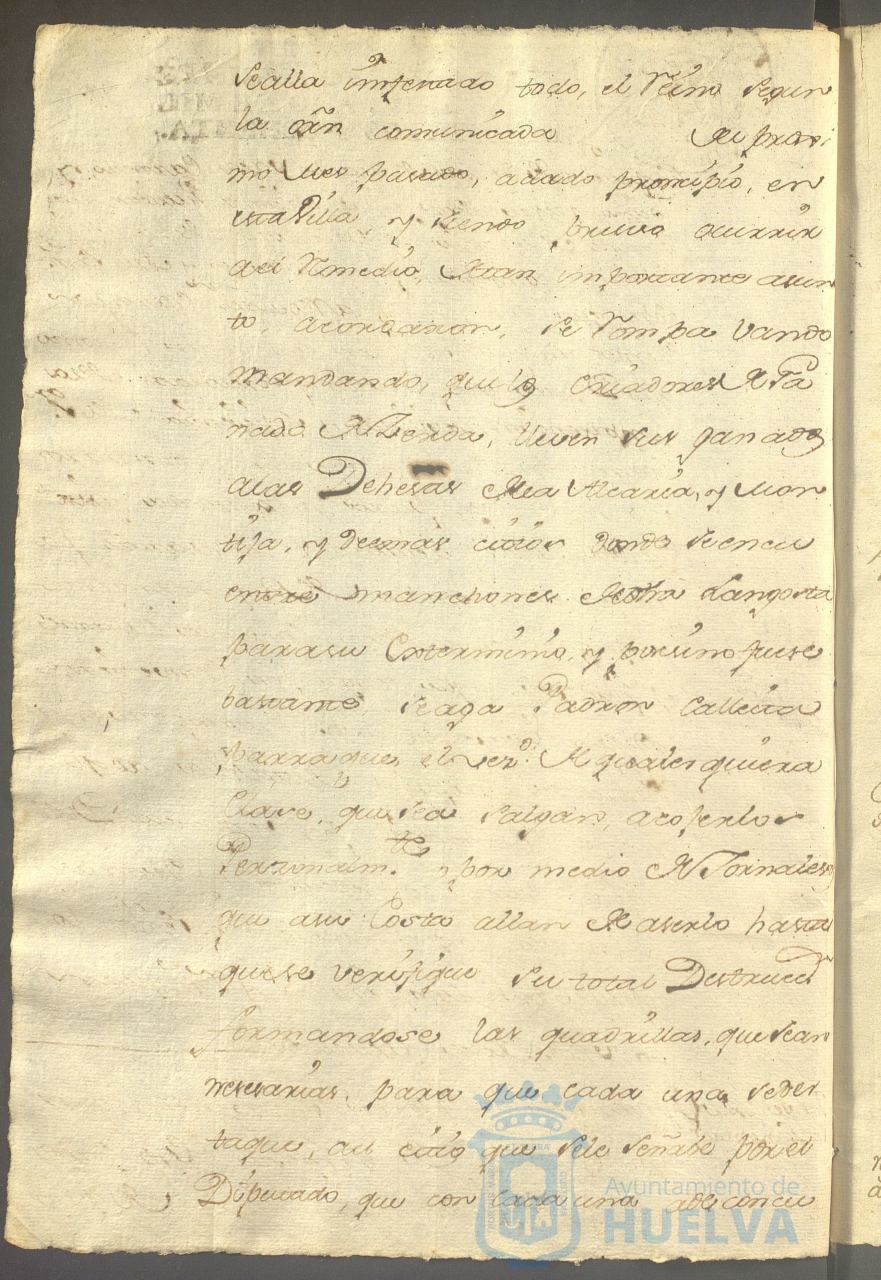 sealla imfenado todo, el Reino segun
la orn comunicada del proxi
mo Mes pasado, adado principio, en
esta Villa, y siendo preciso ocurrir
del Remedio, de tan importante asun
to, acordaron, se Rompa Vando
mandando, que los Criadores de Ga
nado de Zerda, lleven sus ganados
alas Dehesas de la Alcaria, y Mon
tija, y demas citios donde se encu
entre manchones de dha Langosta
para su Extermínio, y por sino fuese
bastante seaga Padron Calleita
parraque el vezo. de qualesquiera
Clase, que sea salgan, acojerlos
Personalmte. y por medio de Jornales
que asu Costa allan de aserlo hasta
quese verifique su total Destrucn
formandose las quadrillas, que sean
nesesarias, para que cada una sedes
taque, al citio que sele señale por el
Diputado, que con cada una ade concu
Ayuntamiento de
HUELVA